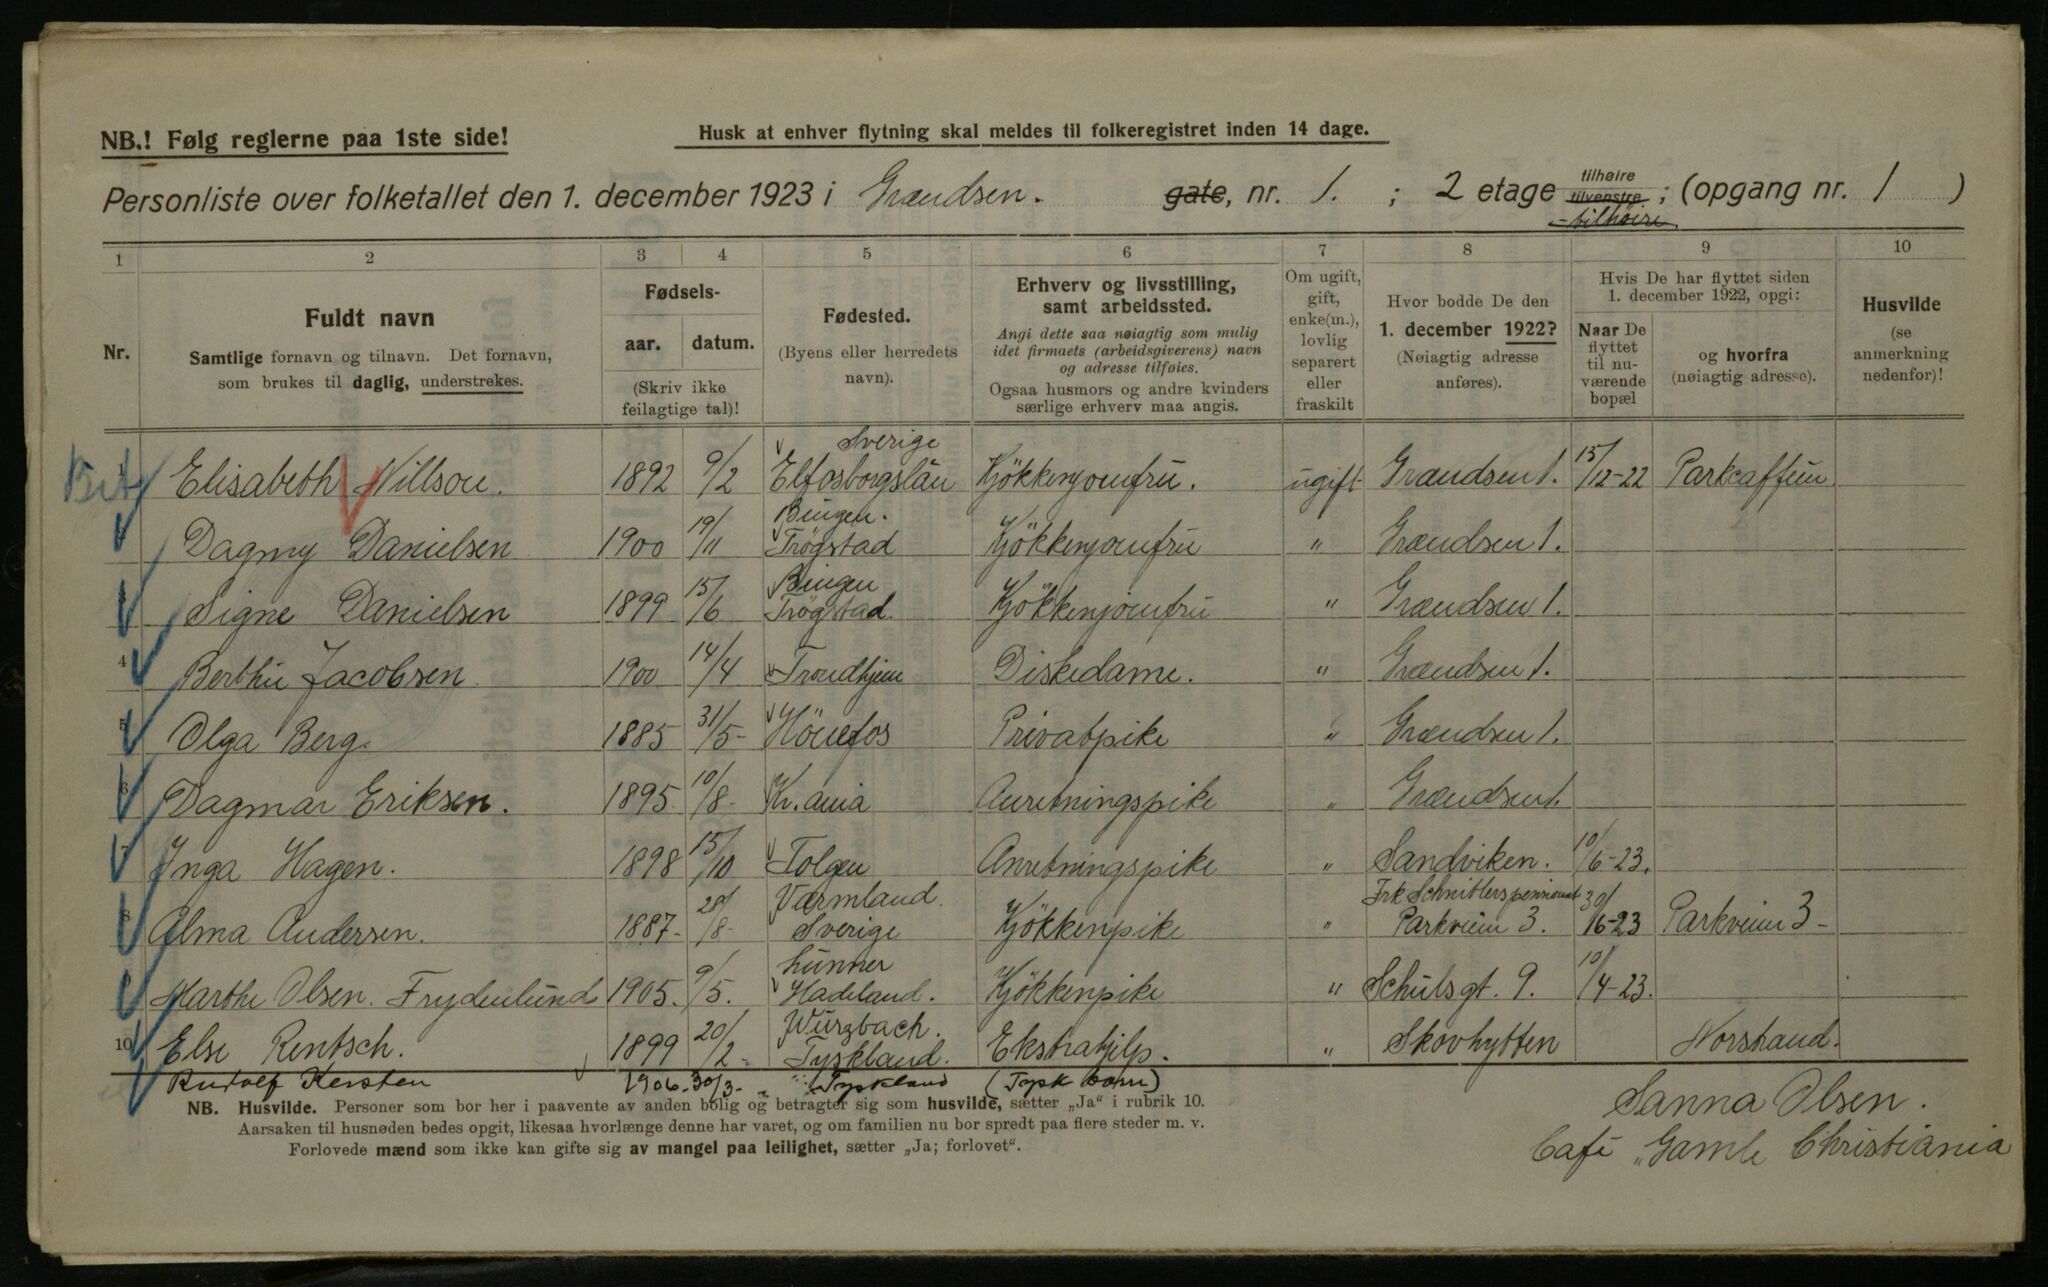 NB.! Følg reglerne paa 1ste side!
Husk at enhver flytning skal meldes til folkeregistret inden 14 dage.
Personliste over folketallet den 1. december 1923 i Grændsen. gate, nr. 1. ; 2 etage tilhøire tilvenstre ; (opgang nr. 1 )
- tilhöire
1 2 3 4 5 6 7 8 9 10
Nr.
Fuldt navn
Samtlige fornavn og tilnavn. Det fornavn,
som brukes til daglig, understrekes.
Fødsels-
aar. datum.
(Skriv ikke
feilagtige tal)!
Fødested.
(Byens eller herredets
navn).
Erhverv og livsstilling,
samt arbeidssted.
Angi dette saa nøiagtig som mulig
idet firmaets (arbeidsgiverens) navn
og adresse tilføies.
Ogsaa husmors og andre kvinders
særlige erhverv maa angis.
Om ugift,
gift,
enke(m.),
lovlig
separert
eller
fraskilt
Hvor bodde De den
1. december 1922?
(Nøiagtig adresse
anføres).
Hvis De har flyttet siden
1. december 1922, opgi:
Naar De
flyttet
til nu-
værende
bopæl
og hvorfra
(nøiagtig adresse).
Husvilde
(se
anmerkning
nedenfor)!
Sverige
Elisabeth Nillson. 1892 9/2 Elfosborgslän Kjökkenjomfru. ugift Grændsen 1. 15/12-22 Parkcafeen
Bingen.
Dagny Danielsen 1900 19/11 Trögstad Kjökkenjomfru " Grændsen 1.
Bingen
3 Signe Danielsen 1899 15/6 Trögstad. Kjökkenjomfru " Grændsen 1.
4 Berthie Jacobsen. 1900 14/4 Trondhjem Diskedame. " Grændsen 1.
5 Olga Berg. 1885 31/5- Hönefos Privatpike " Grændsen 1.
6 Dagmar Eriksen. 1895. 10/8- Kr.ania Anretningspike " Grændsen 1.
7 Inga Hagen. 1898 15/10 Tolgen Anretningspike " Sandviken. 10/6-23.
Værmland. Frk Schnitlers pensionat
8 Alma Andersen. 1887- 28/8- Sverige Kjökkenpike " Parkveien 3. 30/6-23 Parkveien 3-
Lunner
9 Marthe Olsen. Frydenlund 1905. 9/5. Hadeland. Kjökkenpike " Schulsgt. 9. 10/4-23.
Würzbach.
10 Else Rentsch. 1899 20/2- Tyskland. Ekstrahjelp. " Skovhytten Norstrand.
Rudolf Kersten 1906. 30/3- Tyskland (Tysk barn)
NB. Husvilde. Personer som bor her i paavente av anden bolig og betragter sig som husvilde, sætter „Ja“ i rubrik 10.
Aarsaken til husnøden bedes opgit, likesaa hvorlænge denne har varet, og om familien nu bor spredt paa flere steder m. v.
Forlovede mænd som ikke kan gifte sig av mangel paa leilighet, sætter „Ja; forlovet“.
Sanna Olsen.
Café „Gamle Christiania